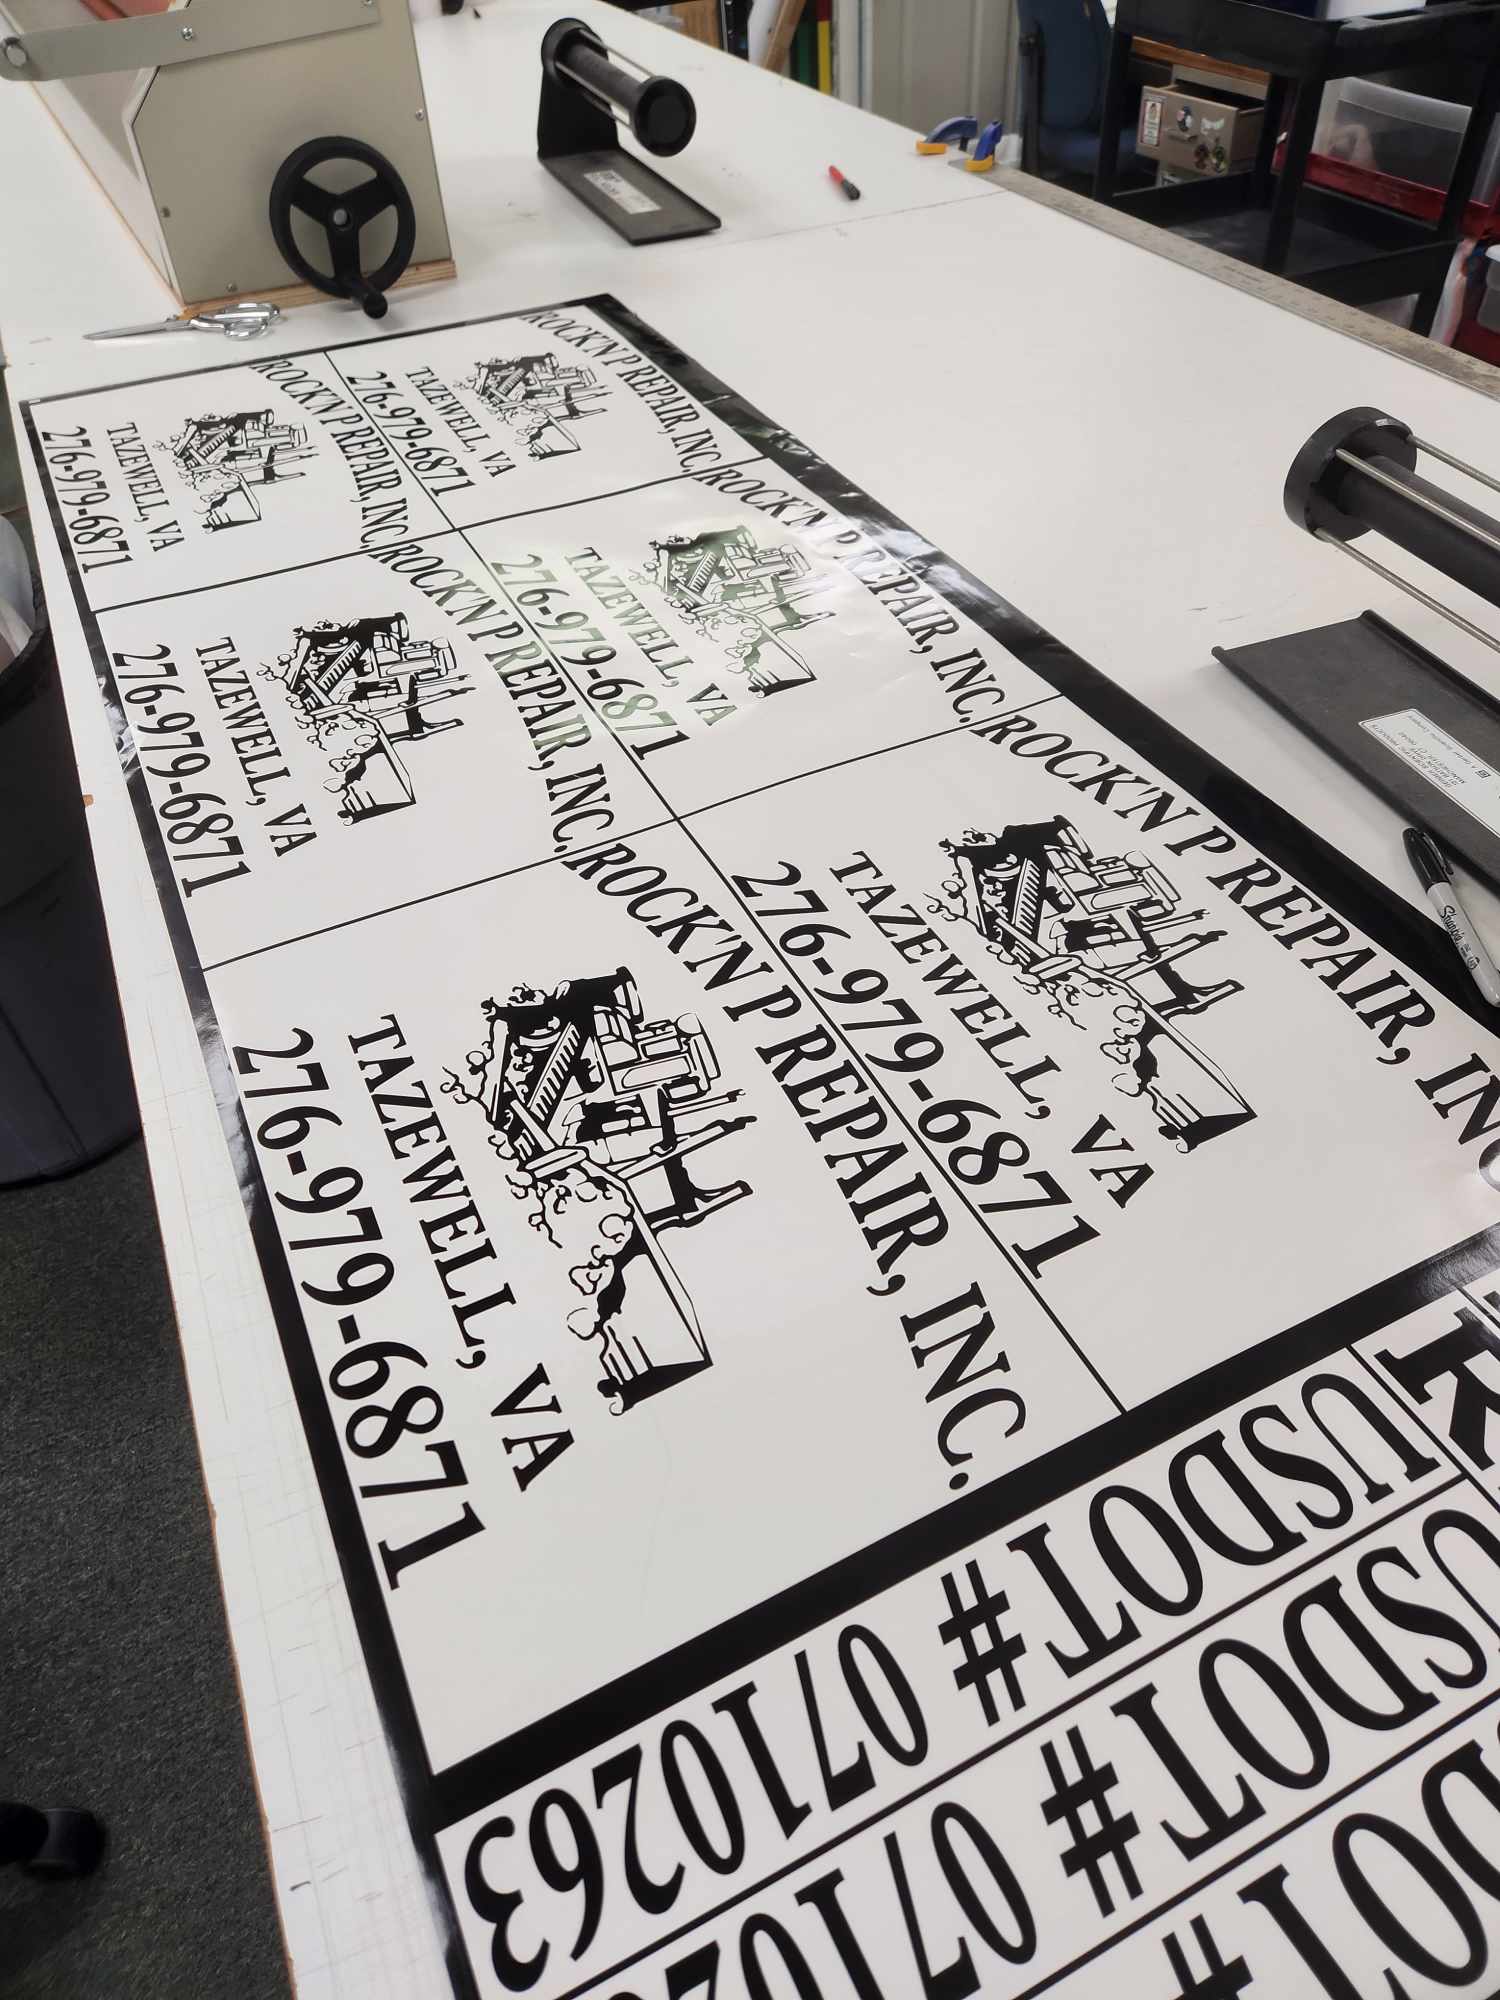 ROCK'N P REPAIR, INC.
TAZEWELL, VA
276-979-6871
ROCK'N P REPAIR, INC.
TAZEWELL, VA
276-979-6871
ROCK'N P REPAIR, INC.
TAZEWELL, VA
276-979-6871
ROCK'N P REPAIR, INC.
TAZEWELL, VA
276-979-6871
ROCK'N P REPAIR, INC.
TAZEWELL, VA
276-979-6871
ROCK'N P REPAIR, INC
TAZEWELL, VA
276-979-6871
USDOT# 0710263
USDOT# 0710
Sharpie